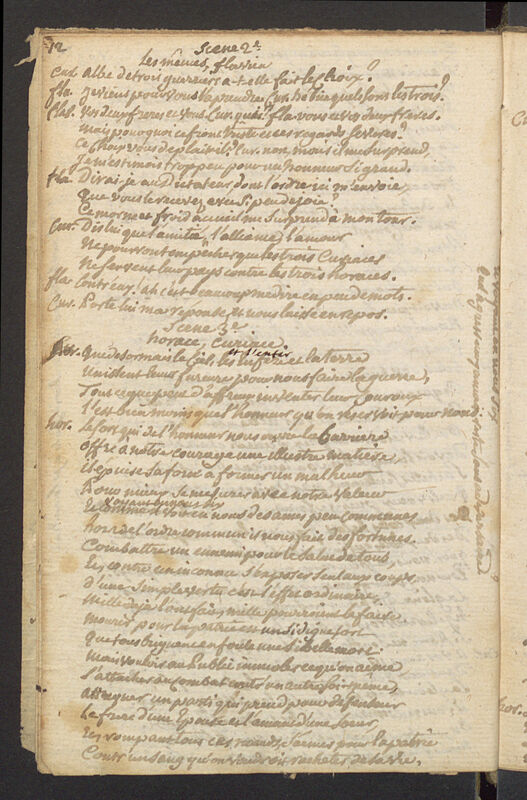 12
Scene 2e
Les mêmes, flavian
cur. albe de trois guerriers a-t-elle fait le choix?
fla. je viens pour vous l'apprendre. Cur. hé bien quels sont les trois?
fla. vos deux freres et vous. Cur. qui? fla. vous et vos deux freres.
mais pourquoi ce front triste et ces regards severes?
Ce choix vous deplait-il? Cur. non, mais il me surprend,
je m'estimois trop peu pour un honneur si grand.
fla. Dirai-je au Dictateur dont l'ordre ici m'envoie
Que vous le recevez avec si peu de joie?
Ce morne et froid accueil me surprend à mon tour.
Cur. Dis lui que l'amitié, l'alliance, l'amour
Ne pourront empêcher que les trois Curiaces
Ne servent leur pays contre les trois horaces.
fla. Contr'eux! ah c'est beaucoup me dire en peu de mots.
Cur. Porte lui ma reponse et nous laisse en repos.
Scene 3e
horace, Curiace.
Cur. Que desormais le ciel, les enfers et la terre
Unissent leurs fureurs pour nous faire la guerre,
hor. Le sort qui de l'honneur nous ouvre la barriere
offre à notre courage une illustre matiere,
Il epuise sa force à former un malheur
Pour mieux se mesurer avec notre valeur
hors de l'ordre commun il nous fait des fortunes.
Combattre un ennemi pour le salut de tous
Et contre un inconnu s'exposer seul aux coups
d'une simple vertu c'est l'effet ordinaire,
Mille deja l'ont fait, mille pourroient le faire
Mourir pour la patrie est un si digne sort
Que tous briguent en foule une si belle mort
Mais vouloir au public immoler ce qu'on aime
S'attacher au combat contre un autre soi-même,
attaquer un parti qui prend pour defenseur
Le frere d'une epouse et l'amant d'une soeur,
Et rompant tous ces noeuds, s'armer pour la patrie
Contre un sang qu'on voudroit racheter de sa vie,